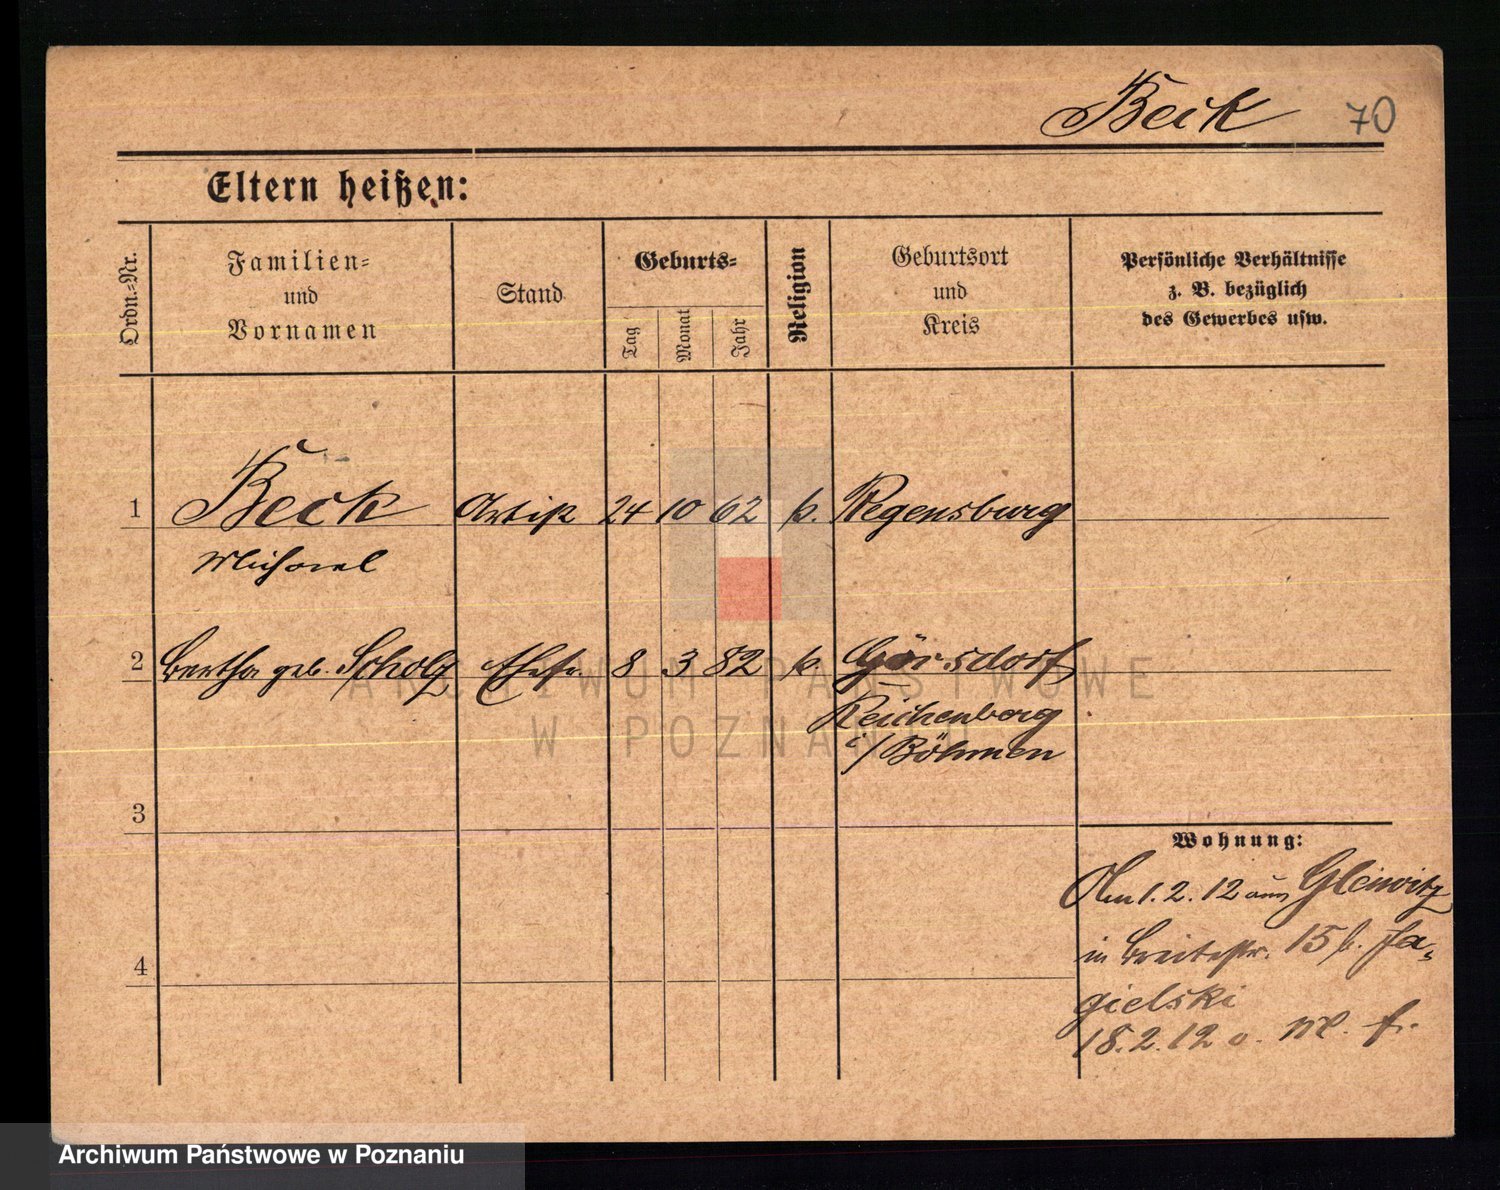 Beck 70
Eltern heißen:
Ordn.-Nr.
Familien-
und
Vornamen
Stand
Geburts-
Tag
Monat
Jahr
Religion
Geburtsort
und
Kreis
Persönliche Verhältnisse
z. B. bezüglich
des Gewerbes usw.
1 Beck Artist 24 10 62 k. Regensburg
Michael
2 Bertha geb. Scholz Ehefr. 8 3 82 k. Görsdorf
Reichenberg
i/Böhmen
3
4
Wohnung:
Am 1. 2. 12 aus Gleiwitz
in Breitestr. 15 b. Ja-
gielski
18. 2. 12 o.
ARCHIWUM PAŃSTWOWE
W POZNANIU
Archiwum Państwowe w Poznaniu